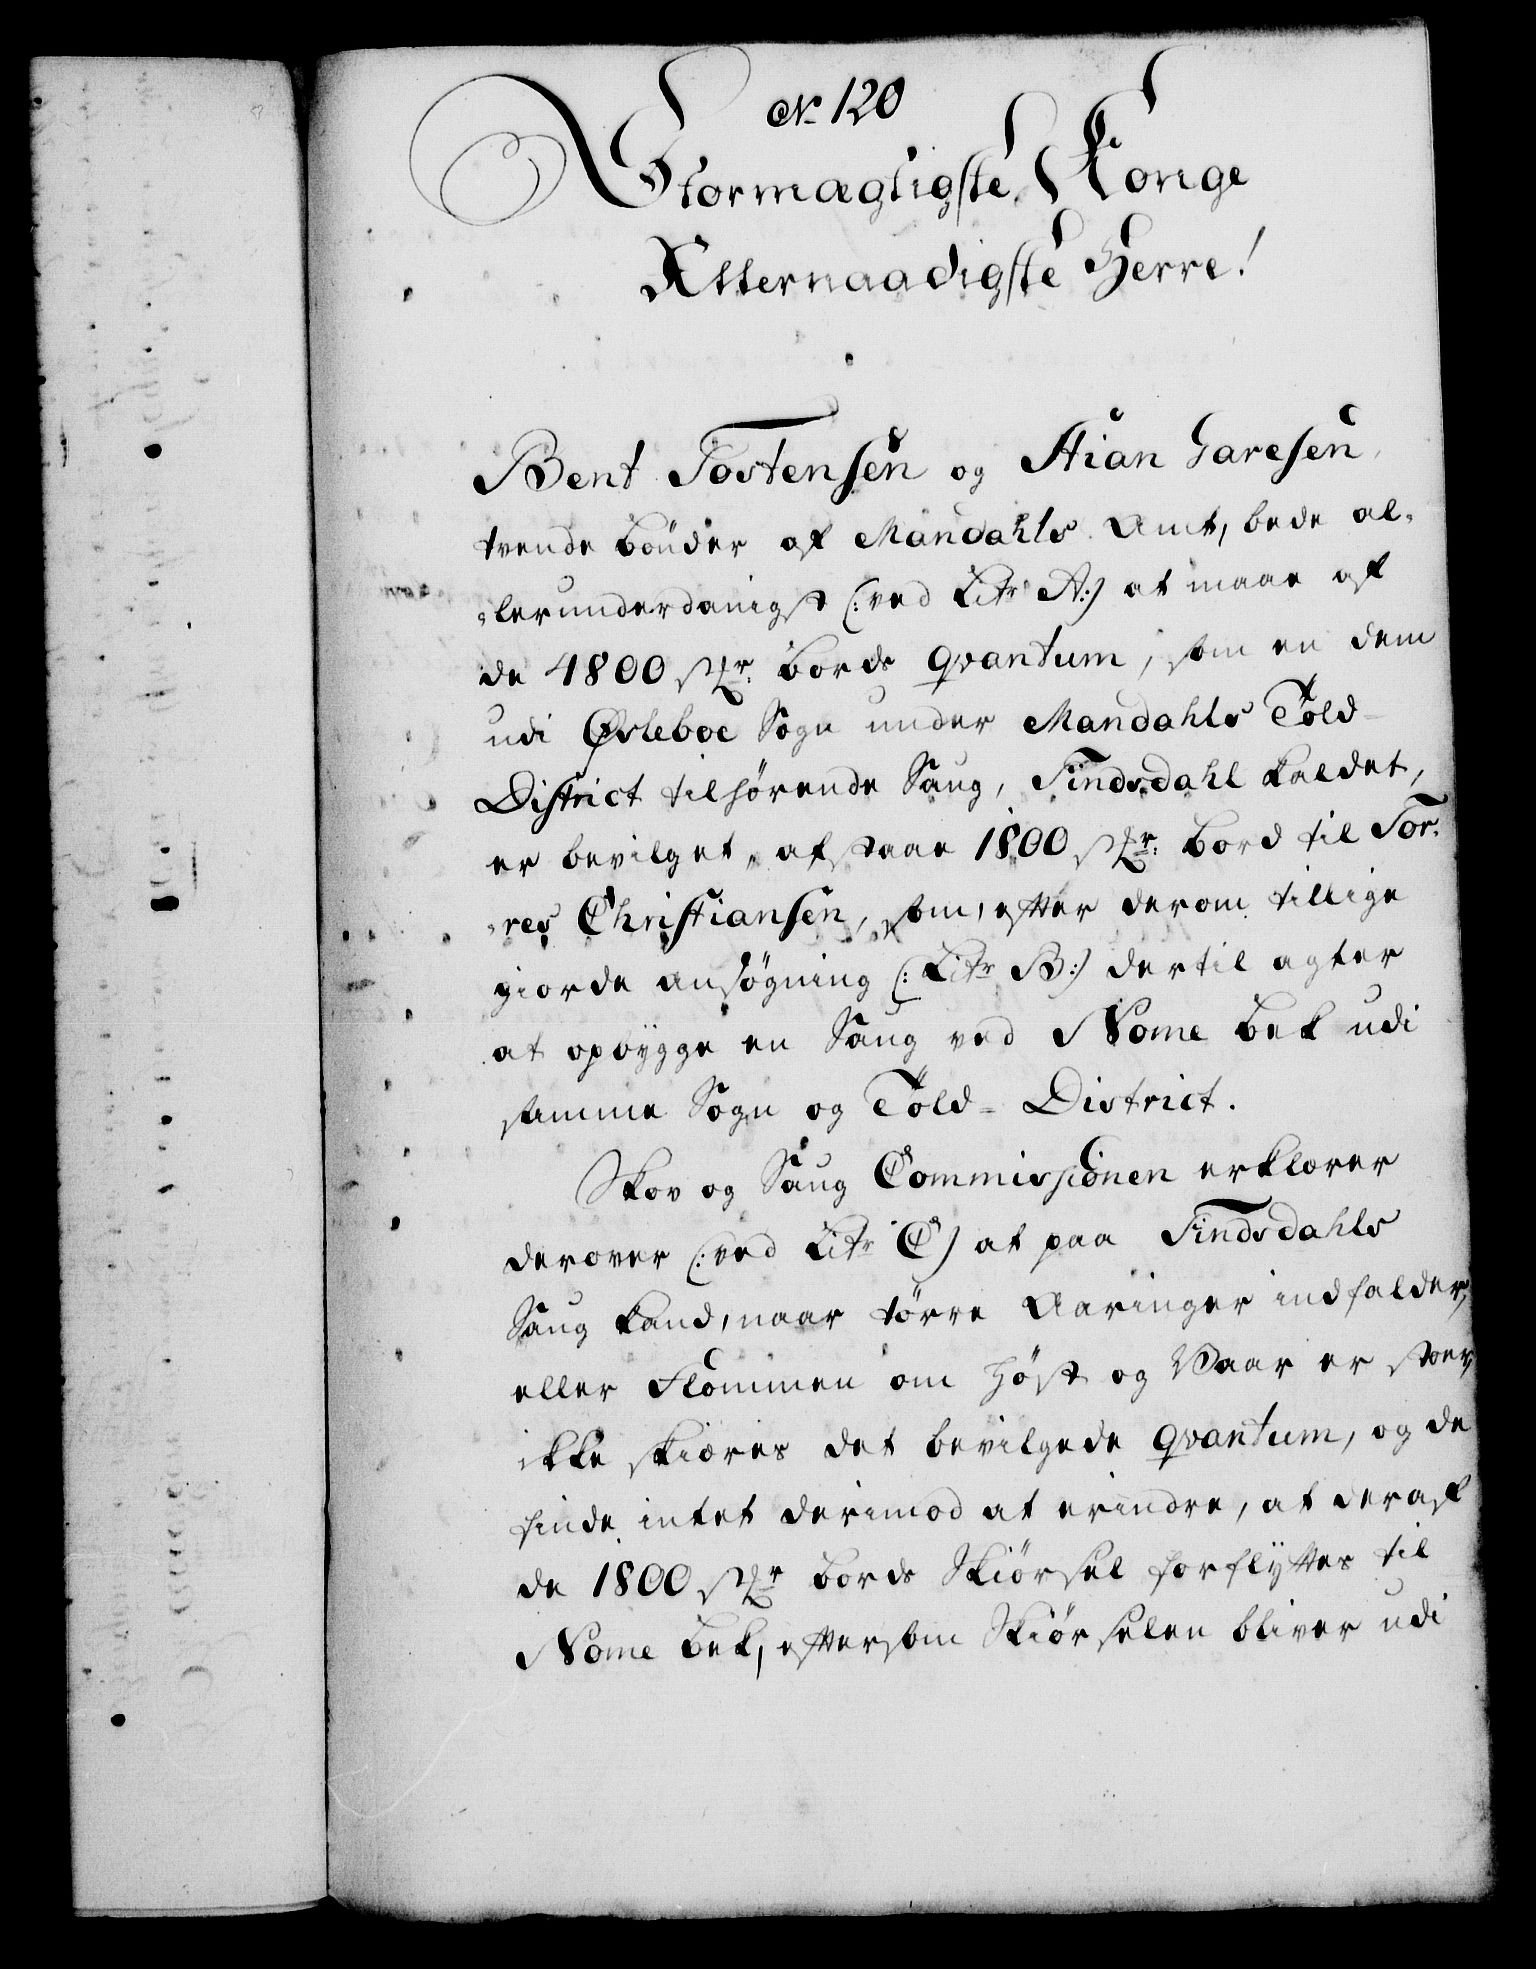 No 120
Stormægtigste Konge
Allernaadigste Herre!
Bent Tostensen og Stian Garesen,
tvende bönder af Mandahls Amt, bede al-
lerunderdanigst (: ved Litr A:) at maae af
de 4800 stkr. bords qvantum, som en dem
udi Øsleboe Sogn under Mandahls Told-
District tilhörende Saug, Findsdahl kaldet,
er bevilget, afstaae 1800 stkr. bord til Tor-
res Christiansen, som, efter derom tillige
giorde ansøgning (: Litr B:) dertil agter
at opbygge en Saug ved Nome bek udi
samme Sogn og Told-District.
Skov og Saug Commissionen erklærer
derover (: ved Litr C) at paa Findsdahls
Saug kand, naar tørre Aaringer indfalder,
eller Flommen om Höst og Vaar er stoer,
ikke skiæres det bevilgede qvantum, og de
finde intet derimod at erindre, at deraf
de 1800 stkr bords Skiörsel forflyttes til
Nome bek, eftersom Skiörselen bliver udi